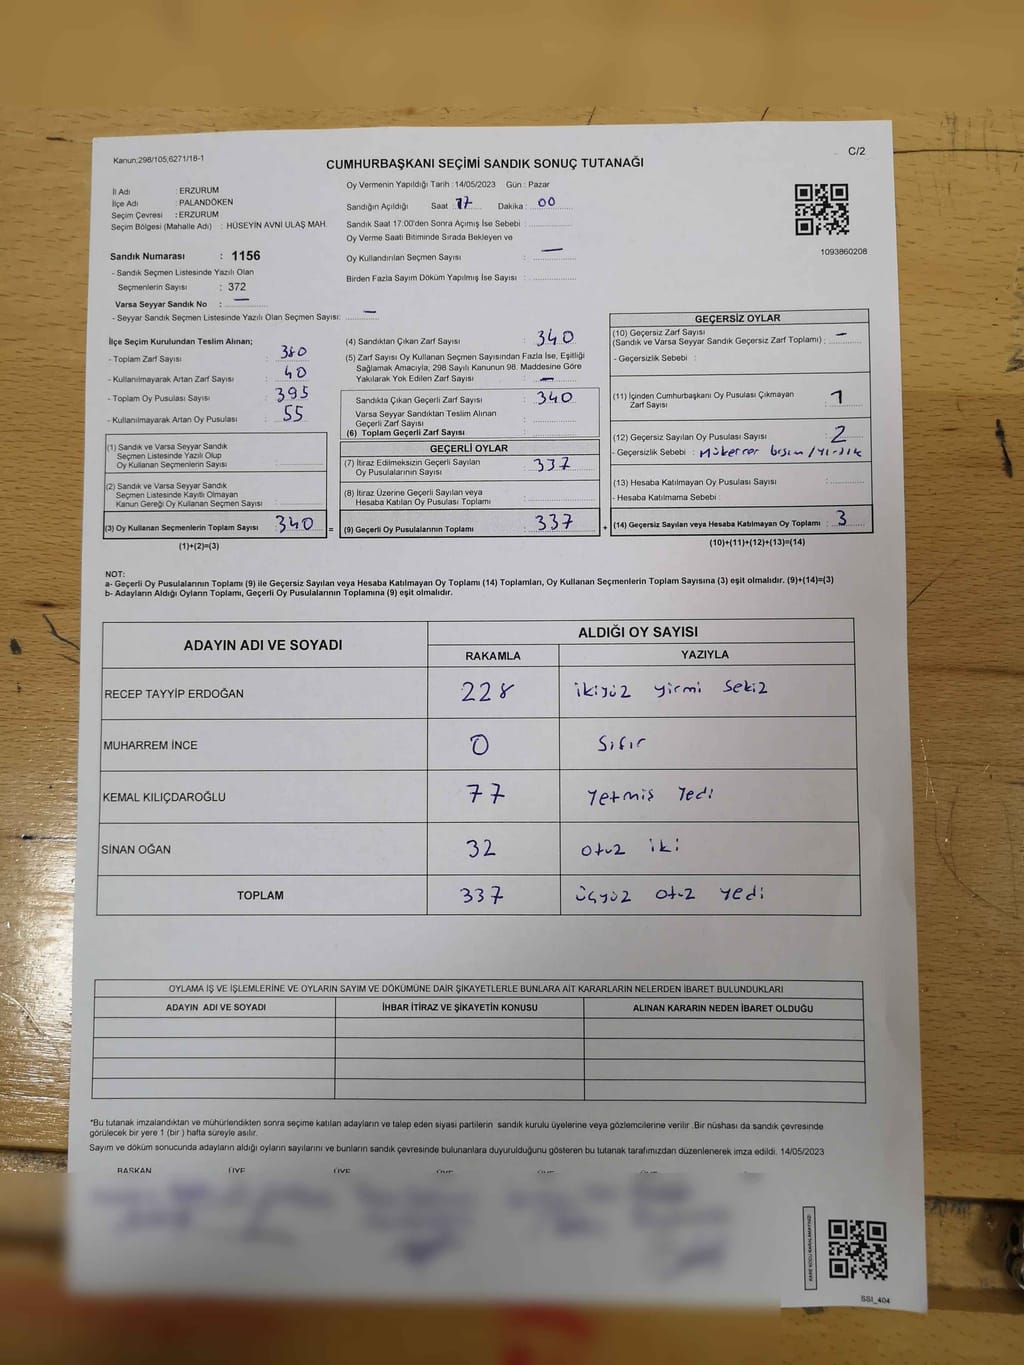 Kanun;298/105;6271/18-1
C/2
CUMHURBAŞKANI SEÇİMİ SANDIK SONUÇ TUTANAĞI
İl Adı : ERZURUM
İlçe Adı : PALANDÖKEN
Seçim Çevresi : ERZURUM
Seçim Bölgesi (Mahalle Adı) : HÜSEYİN AVNİ ULAŞ MAH.
Sandık Numarası : 1156
- Sandık Seçmen Listesinde Yazılı Olan
Seçmenlerin Sayısı : 372
Varsa Seyyar Sandık No : —
- Seyyar Sandık Seçmen Listesinde Yazılı Olan Seçmen Sayısı: —
Oy Vermenin Yapıldığı Tarih : 14/05/2023 Gün : Pazar
Sandığın Açıldığı Saat : 17 Dakika : 00
Sandık Saat 17:00'den Sonra Açımış İse Sebebi :
Oy Verme Saati Bitiminde Sırada Bekleyen ve
Oy Kullandırılan Seçmen Sayısı : —
Birden Fazla Sayım Döküm Yapılmış İse Sayısı :
1093860208
İlçe Seçim Kurulundan Teslim Alınan;
- Toplam Zarf Sayısı : 380
- Kullanılmayarak Artan Zarf Sayısı : 40
- Toplam Oy Pusulası Sayısı : 395
- Kullanılmayarak Artan Oy Pusulası : 55
(1) Sandık ve Varsa Seyyar Sandık
Seçmen Listesinde Yazılı Olup
Oy Kullanan Seçmenlerin Sayısı :
(2) Sandık ve Varsa Seyyar Sandık
Seçmen Listesinde Kayıtlı Olmayan
Kanun Gereği Oy Kullanan Seçmen Sayısı :
(3) Oy Kullanan Seçmenlerin Toplam Sayısı : 340
(1)+(2)=(3)
=
(4) Sandıktan Çıkan Zarf Sayısı : 340
(5) Zarf Sayısı Oy Kullanan Seçmen Sayısından Fazla İse, Eşitliği
Sağlamak Amacıyla, 298 Sayılı Kanunun 98. Maddesine Göre
Yakılarak Yok Edilen Zarf Sayısı : —
Sandıkta Çıkan Geçerli Zarf Sayısı : 340
Varsa Seyyar Sandıktan Teslim Alınan
Geçerli Zarf Sayısı :
(6) Toplam Geçerli Zarf Sayısı :
GEÇERLİ OYLAR
(7) İtiraz Edilmeksizin Geçerli Sayılan
Oy Pusulalarının Sayısı : 337
(8) İtiraz Üzerine Geçerli Sayılan veya
Hesaba Katılan Oy Pusulası Toplamı :
(9) Geçerli Oy Pusulalarının Toplamı : 337
+
GEÇERSİZ OYLAR
(10) Geçersiz Zarf Sayısı
(Sandık ve Varsa Seyyar Sandık Geçersiz Zarf Toplamı) : —
- Geçersizlik Sebebi :
(11) İçinden Cumhurbaşkanı Oy Pusulası Çıkmayan
Zarf Sayısı : 1
(12) Geçersiz Sayılan Oy Pusulası Sayısı : 2
- Geçersizlik Sebebi : Mükerrer basım / yırtık
(13) Hesaba Katılmayan Oy Pusulası Sayısı :
- Hesaba Katılmama Sebebi :
(14) Geçersiz Sayılan veya Hesaba Katılmayan Oy Toplamı : 3
(10)+(11)+(12)+(13)=(14)
NOT:
a- Geçerli Oy Pusulalarının Toplamı (9) ile Geçersiz Sayılan veya Hesaba Katılmayan Oy Toplamı (14) Toplamları, Oy Kullanan Seçmenlerin Toplam Sayısına (3) eşit olmalıdır. (9)+(14)=(3)
b- Adayların Aldığı Oyların Toplamı, Geçerli Oy Pusulalarının Toplamına (9) eşit olmalıdır.
ADAYIN ADI VE SOYADI ALDIĞI OY SAYISI
RAKAMLA YAZIYLA
RECEP TAYYİP ERDOĞAN 228 ikiyüz yirmi sekiz
MUHARREM İNCE 0 Sıfır
KEMAL KILIÇDAROĞLU 77 Yetmiş Yedi
SİNAN OĞAN 32 otuz iki
TOPLAM 337 üçyüz otuz yedi
OYLAMA İŞ VE İŞLEMLERİNE VE OYLARIN SAYIM VE DÖKÜMÜNE DAİR ŞİKAYETLERLE BUNLARA AİT KARARLARIN NELERDEN İBARET BULUNDUKLARI
ADAYIN ADI VE SOYADI İHBAR İTİRAZ VE ŞİKAYETİN KONUSU ALINAN KARARIN NEDEN İBARET OLDUĞU
*Bu tutanak imzalandıktan ve mühürlendikten sonra seçime katılan adayların ve talep eden siyasi partilerin sandık kurulu üyelerine veya gözlemcilerine verilir .Bir nüshası da sandık çevresinde
görülecek bir yere 1 (bir ) hafta süreyle asılır.
Sayım ve döküm sonucunda adayların aldığı oyların sayılarını ve bunların sandık çevresinde bulunanlara duyurulduğunu gösteren bu tutanak tarafımızdan düzenlenerek imza edildi. 14/05/2023
BAŞKAN ÜYE ÜYE ÜYE ÜYE ÜYE
KARE KODU KARALAMAYINIZ!
SSI_404